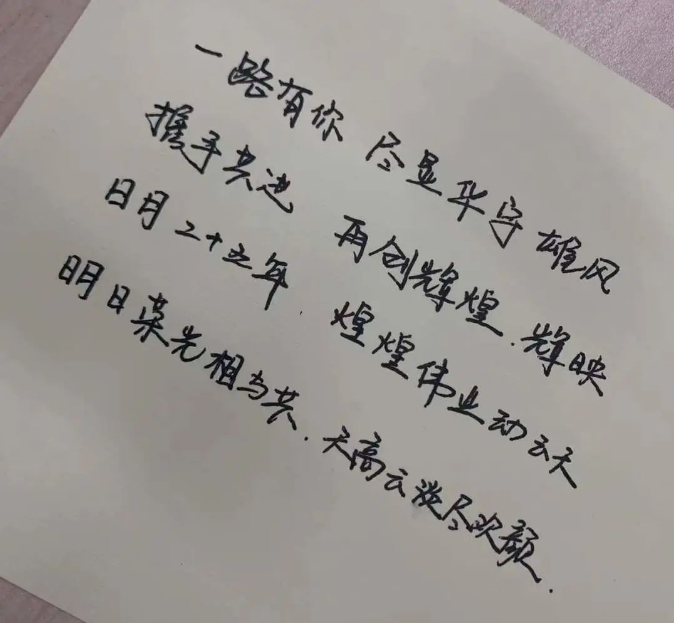 一路有你 尽显华宇雄风
携手共进 再创辉煌.辉映
日月二十五年 煌煌伟业动云天
明日荣光相与共.天高云淡尽欢颜.